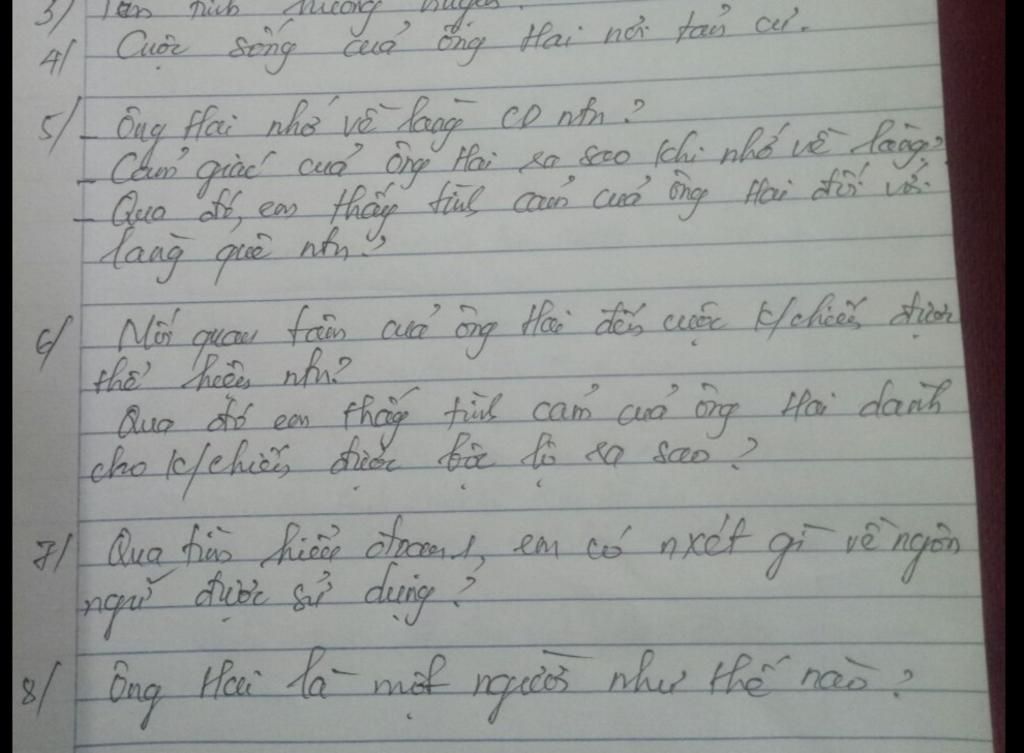 3/ Tản
4/ Cuộc sống của ông Hai nơi tản cư.
5/ - Ông Hai nhớ về làng CD ntn?
- Cảm giác của ông Hai ra sao khi nhớ về làng?
- Qua đó, em thấy tình cảm của ông Hai đối với
làng quê ntn?
6/ Mối quan tâm của ông Hai đến cuộc k/chiến được
thể hiện ntn?
Qua đó em thấy tình cảm của ông Hai dành
cho k/chiến được bộc lộ ra sao?
7/ Qua tìm hiểu đoạn 1, em có nxét gì về ngôn
ngữ được sử dụng?
8/ Ông Hai là một người như thế nào?